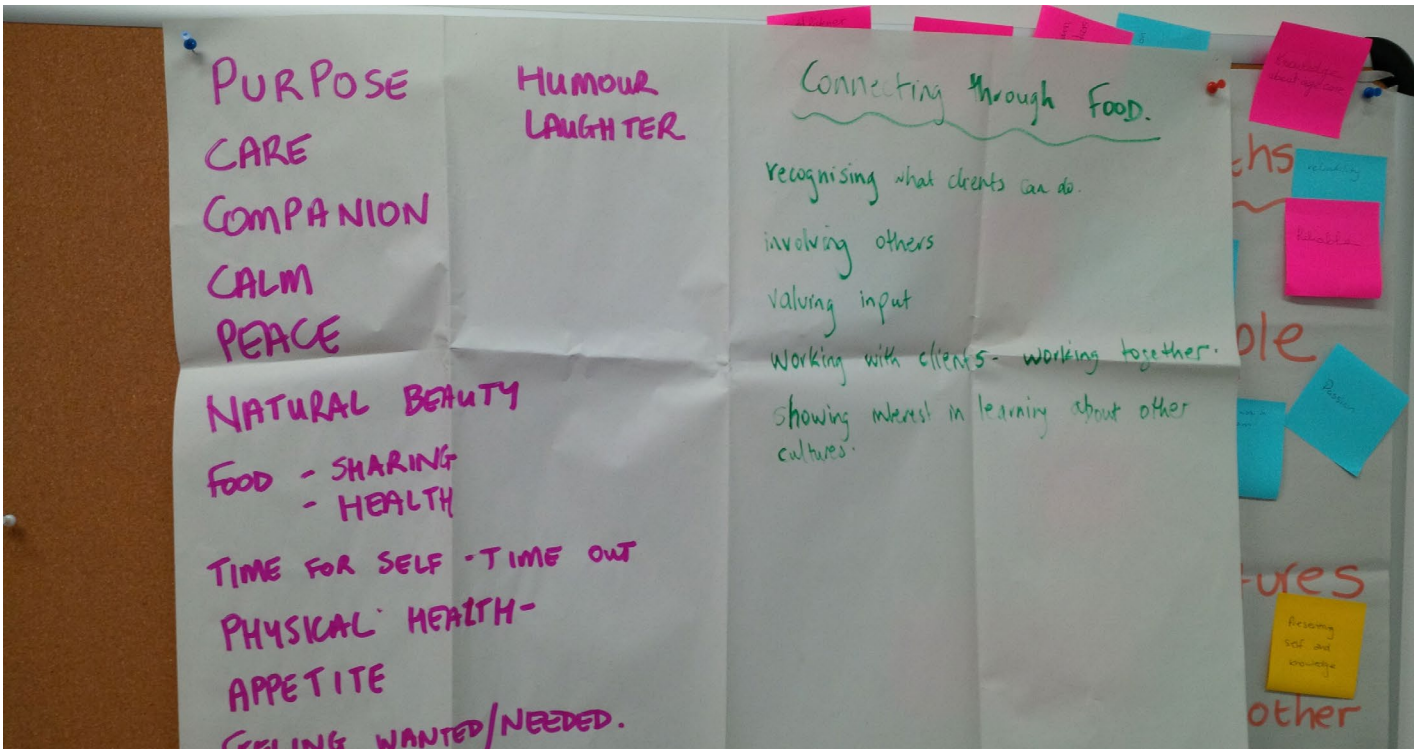 PURPOSE
CARE
COMPANION
CALM
PEACE
NATURAL BEAUTY
FOOD - SHARING
- HEALTH
TIME FOR SELF - TIME OUT
PHYSICAL HEALTH -
APPETITE
FEELING WANTED/NEEDED.
HUMOUR
LAUGHTER
Connecting through FOOD.
recognising what clients can do.
involving others
valuing input
working with clients - working together.
showing interest in learning about other
cultures.
Knowledge
about age care
ths
Reliable
ple
Passion
tures
Presenting
self and
knowledge
other